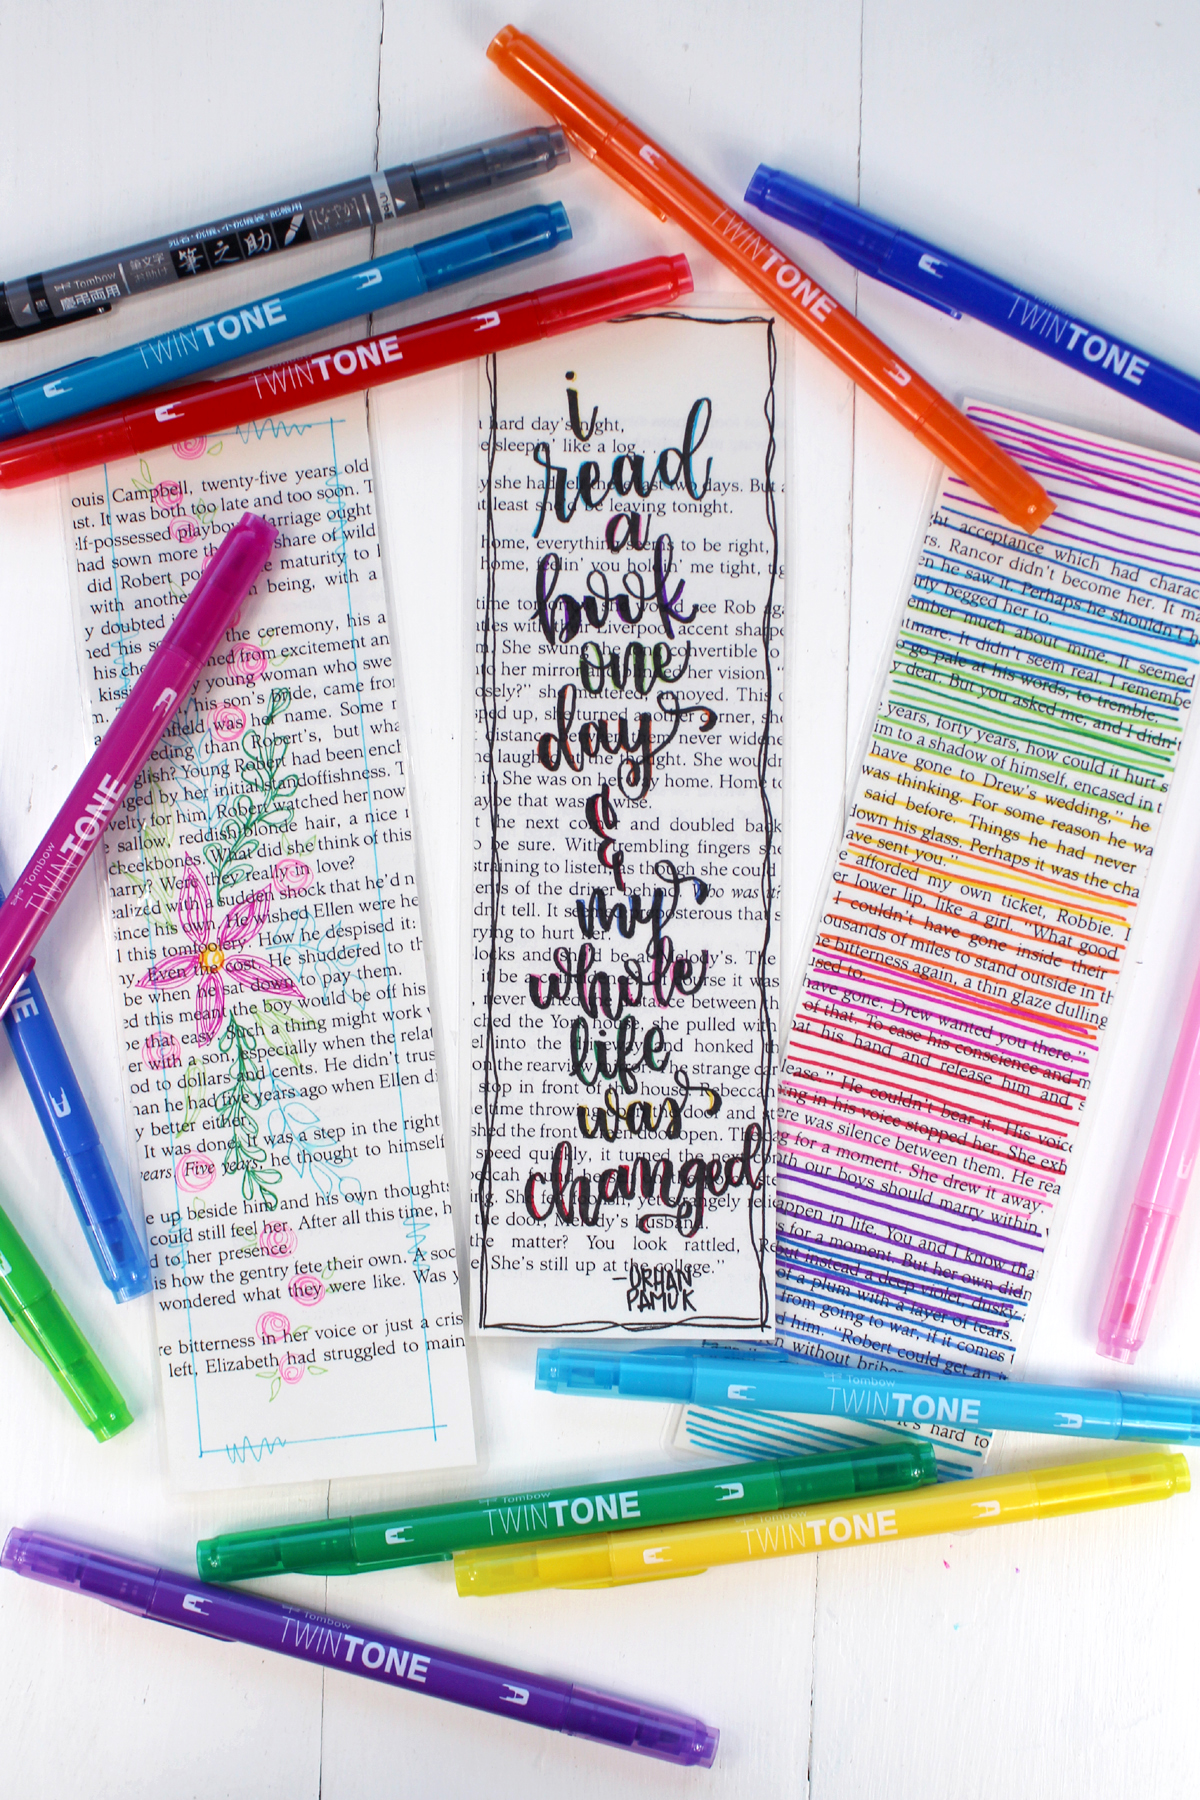 宛名・祝儀、不祝儀袋・記帳用
Tombow
筆文字
筆之助
慶弔両用
TWINTONE
TWINTONE
TWINTONE
TWINTONE
Tombow
TWINTONE
NE
ouis Campbell, twenty-five years old
ust. It was both too late and too soon. T
elf-possessed playboy marriage ought
had sown more share of wild
did Robert maturity to
with another being, with a
y doubted
the ceremony, his a
from excitement an
young woman who swe
his son's bride, came from
nfield was her name. Some
eding than Robert's, but wha
glish? Young Robert had been ench
ged by her initial standoffishness. T
velty for him, Robert watched her now
e sallow, reddish blonde hair, a nice
cheekbones. What did she think of this
narry? Were they really in love?
ealized with a sudden shock that he'd n
since his own He wished Ellen were he
l this tomfoolery. How he despised it:
ny. Even the cost. He shuddered to th
be when he sat down to pay them.
ed this meant the boy would be off his
be that easy. Such a thing might work
er with a son, especially when the relat
od to dollars and cents. He didn't trus
han he had five years ago when Ellen di
y better either.
It was done. It was a step in the right
years. Five years, he thought to himself
e up beside him and his own thoughts
could still feel her. After all this time, h
d to her presence.
is how the gentry fete their own. A soc
wondered what they were like. Was y
re bitterness in her voice or just a cris
left, Elizabeth had struggled to main
i
read
a
book
one
day
&
my
whole
life
was
changed
-ORHAN
PAMUK
a hard day's night,
e sleepin' like a log . . .
y she had days. But a
t least she'd be leaving tonight.
home, everything seems to be right,
home, feelin' you holdin' me tight, tig
time would see Rob aga
Liverpool accent sharpe
m. She swung convertible to
to her mirror her vision.
osely?" she muttered, annoyed. This
ped up, she turned another corner, she
distance between them never widene
he laughed the thought. She wouldn
it. She was on her way home. Home to
aybe that was wise.
t the next corner and doubled back
o be sure. With trembling fingers she
straining to listen as though she could
ents of the driver behind Who was it?
dn't tell. It seemed preposterous that s
rying to hurt her.
locks and should be at Melody's. The
it be a of course it was
never distance between th
ched the York house, she pulled with
el into the driveway and honked
on the rearview before the strange car
stop in front of house. Rebecca
e time throwing open the door and
shed the front door open. The
speed quickly, it turned the next
the door, Melody's husband.
the matter? You look rattled, Re
She's still up at the college."
ht acceptance which had charac
rs. Rancor didn't become her. It ma
en he saw it. Perhaps he shouldn't h
arly begged her to.
ember much about mine. It seemed
tmare. It didn't seem real. I remembe
o go pale at his words, to tremble.
y dear. But you asked me, and I didn't
years, forty years, how could it hurt s
m to a shadow of himself, encased in t
have gone to Drew's wedding," he
was thinking. For some reason he wa
said before. Things he had never
down his glass. Perhaps it was the cha
ave sent you."
e afforded my own ticket, Robbie. I
er lower lip, like a girl. "What good
I couldn't have gone inside their
ousands of miles to stand outside in th
he bitterness again, a thin glaze dulling
used to.
have gone. Drew wanted you there."
of that. To ease his conscience and m
pat his hand and release him and s
lease." He couldn't bear it. His voice
ing in his voice stopped her. She exh
ere was silence between them. He rea
g for a moment. She drew it away.
oth our boys should marry within
appen in life. You and I know tha
s for a moment. But her own didn
but instead a deep violet, dusky
of a plum with a layer of tears.
from going to war, if it comes
d him. "Robert could get an
n without bribe
it's hard to
TWINTONE
Tombow
TWINTONE
TWINTONE
Tombow
TWINTONE